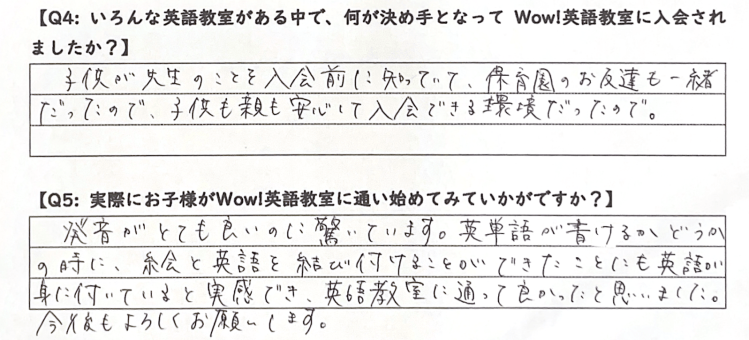 【Q4: いろんな英語教室がある中で、何が決め手となって Wow!英語教室に入会され
ましたか？】
子供が先生のことを入会前に知っていて、保育園のお友達も一緒
だったので、子供も親も安心して入会できる環境だったので。
【Q5: 実際にお子様がWow!英語教室に通い始めてみていかがですか？】
発音がとても良いのに驚いています。英単語が書けるかどうか
の時に、絵と英語を結び付けることができたことにも英語が
身に付いていると実感でき、英語教室に通って良かったと思いました。
今後もよろしくお願いします。